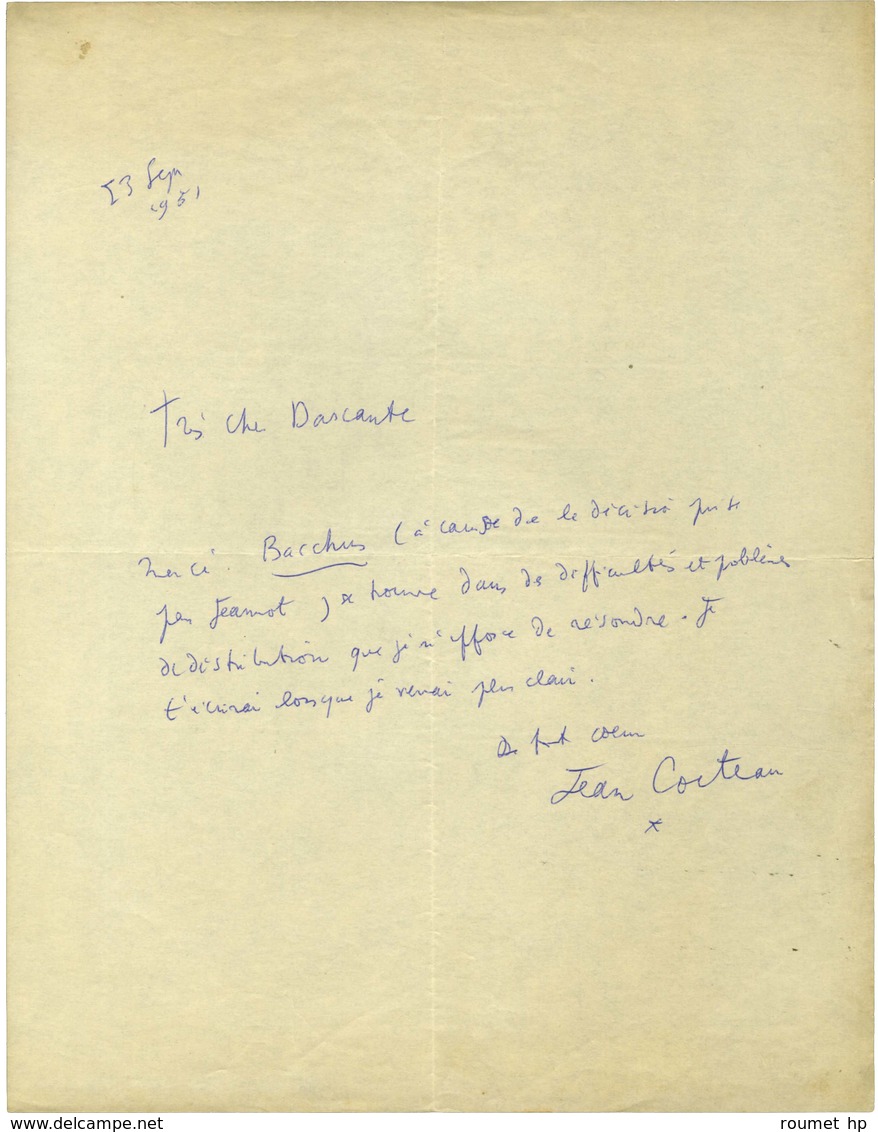 23 Sept
1951
Très cher Dascante
Merci. Bacchus (à cause de la décision prise
par Jeannot) se trouve dans des difficultés et problèmes
de distribution que je m'efforce de résoudre. Je
t'écrirai lorsque je verrai plus clair.
De tout coeur
Jean Cocteau
*
www.delcampe.net
roumet hp